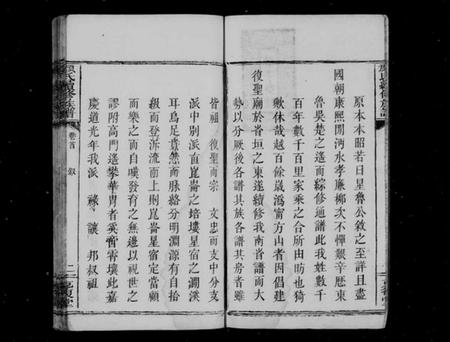 原本本昭若日星魯公敘之至詳且盡
國朝康熙閒沔水孝廉椰次不憚艱辛歷東
魯吳楚之遙而綜修通譜此我姓數千
百年數千百里家乘之合所由昉也猗
歟休哉越百餘歲鴻甯方山者因倡建
復聖廟於省垣之東遂續修我南省譜而大
勢以分厥後各譜其族各譜其房者雖
皆祖 復聖而宗 文忠而支中分支
派中別派直崑崙之培塿星宿之澗溪
耳烏足貴然而脈絡分明淵源有自拾
級而登泝流而上則崑崙星宿定當顧
而樂之而自嘆發育之無邊以視世之
謬附高門遙攀華胄者奚啻霄壤此嘉
慶道光年我派 祿 讓 邦叔祖
卷首 敘
二